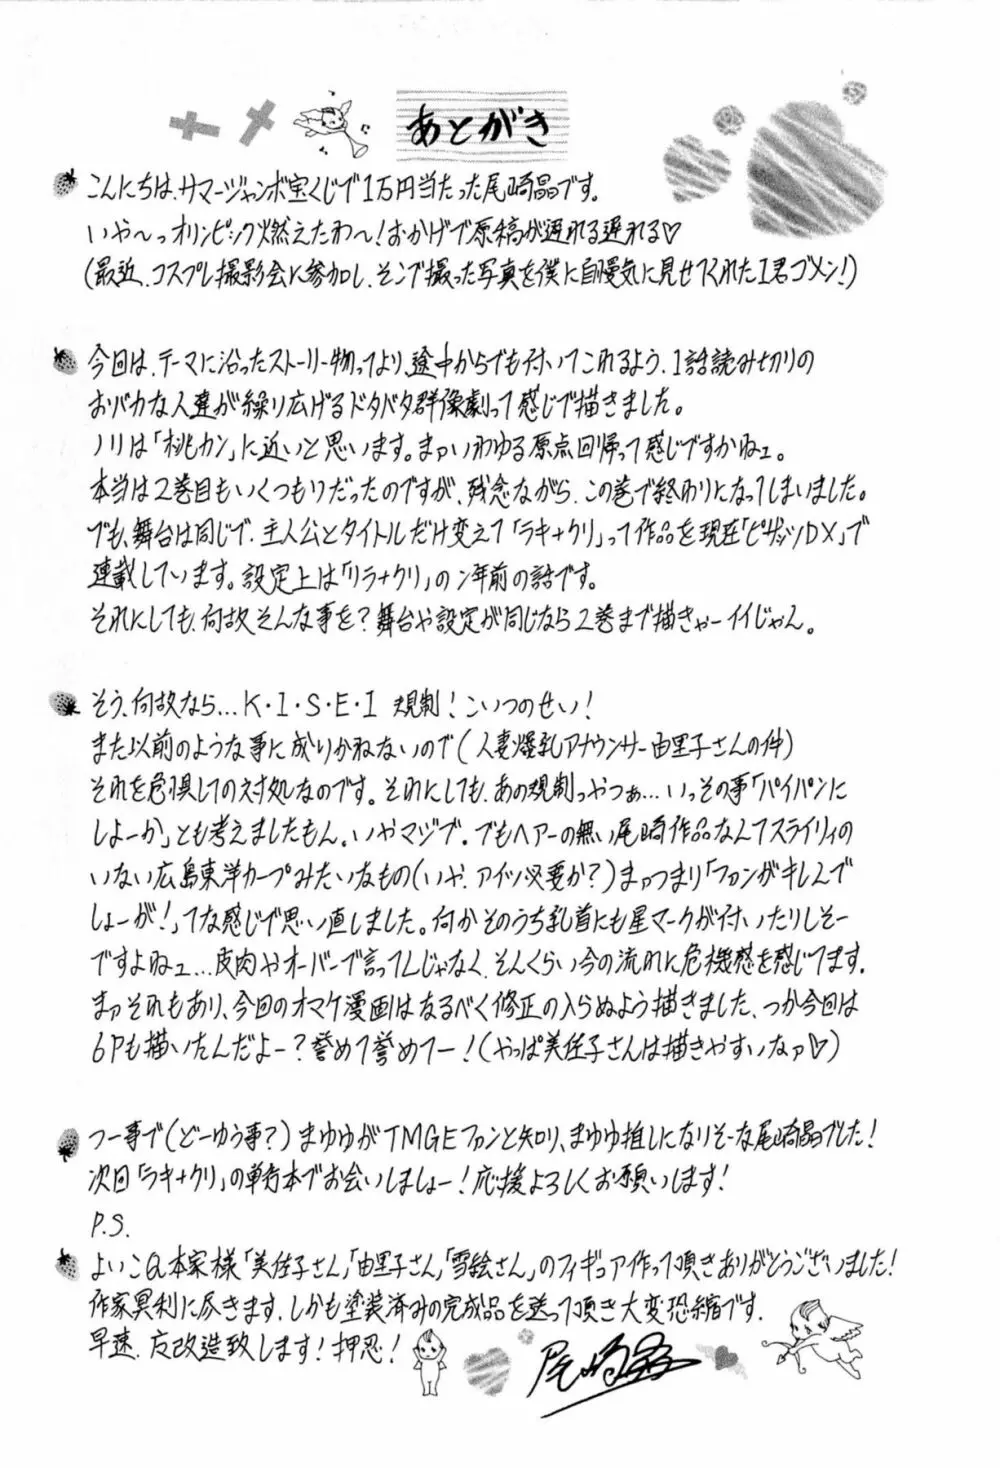 あとがき
こんにちは、サマージャンボ宝くじで1万円当たった尾崎晶です。
いや〜っオリンピック燃えたわ〜!おかげで原稿が遅れる遅れる♡
(最近、コスプレ撮影会に参加し、そこで撮った写真を僕に自慢気に見せてくれたI君ゴメン!)
今回は、テーマに沿ったストーリー物ってより、途中からでも付いてこれるよう、1話読み切りの
おバカな人達が繰り広げるドタバタ群像劇って感じで描きました。
ノリは「桃カン」に近いと思います。まァいわゆる原点回帰って感じですかねェ。
本当は2巻目もいくつもりだったのですが、残念ながら、この巻で終わりになってしまいました。
でも、舞台は同じで、主人公とタイトルだけ変えて「ラキ+クリ」って作品を現在「ピザッツDX」で
連載しています。設定上は「リラ+クリ」の2年前の話です。
それにしても、何故そんな事を?舞台や設定が同じなら2巻まで描きゃーイイじゃん。
そう、何故なら…K・I・S・E・I 規制!こいつのせい!
また以前のような事に成りかねないので(人妻爆乳アナウンサー由里子さんの件)
それを危惧しての対処なのです。それにしても、あの規制っやつぁ…いっその事「パイパンに
しよーか」とも考えましたもん。いやマジで。でもヘアーの無い尾崎作品なんてスライリィの
いない広島東洋カープみたいなもの(いや、アイツ必要か?)まァつまり「ファンがキレんで
しょーが!」てな感じで思い直しました。何かそのうち乳首にも星マークが付いたりしそー
ですよねェ…皮肉やオーバーで言ってんじゃなく、そんくらい今の流れに危機感を感じてます。
まァそれもあり、今回のオマケ漫画はなるべく修正の入らぬよう描きました、つか今回は
6Pも描いたんだよー?誉めて誉めてー!(やっぱ美佐子さんは描きやすいなァ♡)
つー事で(どーゆう事?)まゆゆがTMGEファンと知り、まゆゆ推しになりそーな尾崎晶でした!
次回「ラキ+クリ」の単行本でお会いしましょー!応援よろしくお願いします!
P.S.
よいこQ本家様「美佐子さん」「由里子さん」「雪絵さん」のフィギュア作って頂きありがとうございました!
作家冥利に尽きます。しかも塗装済みの完成品を送って頂き大変恐縮です。
早速、友改造致します!押忍!
尾崎晶